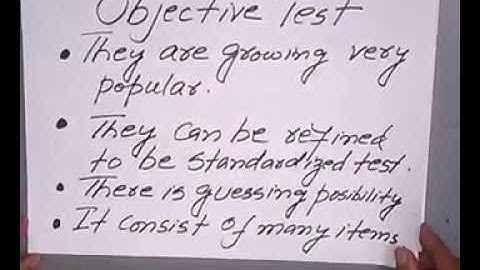 Objective Test
• They are growing very
popular.
• They can be refined
to be standardized test.
• There is guessing posibility
• It consist of many items